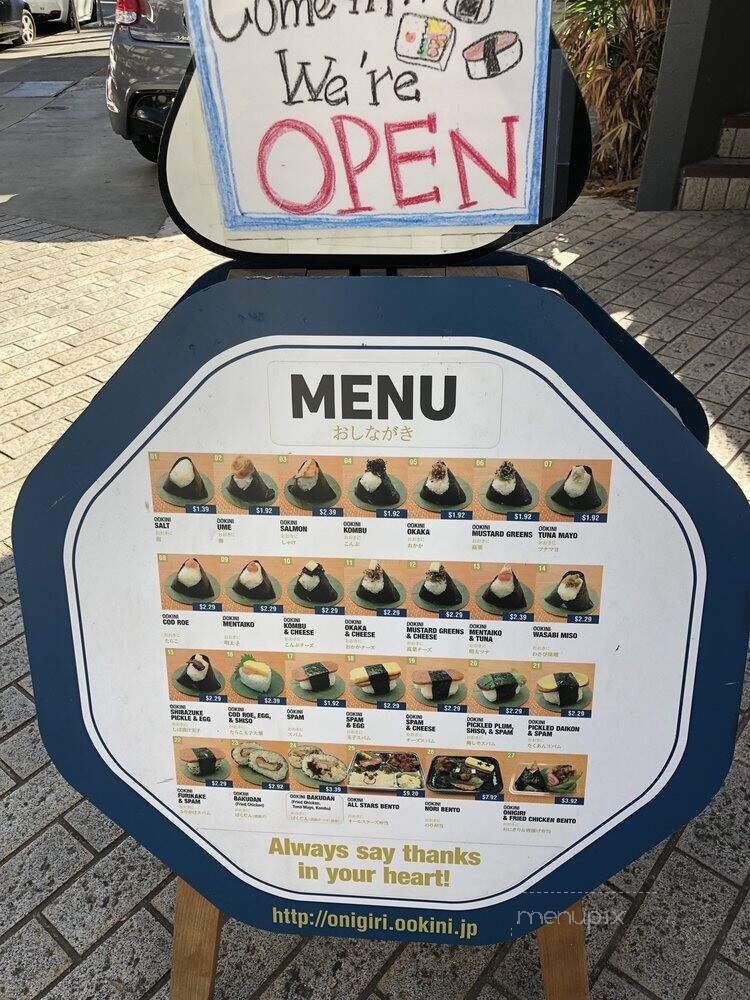 Come in!!
We're
OPEN
MENU
おしながき
01 02 03 04 05 06 07
$1.39 $1.92 $2.39 $1.92 $1.92 $1.92 $1.92
OOKINI SALT
OOKINI UME
OOKINI SALMON
しゃけ
OOKINI KOMBU
こんぶ
OOKINI OKAKA
おかか
OOKINI MUSTARD GREENS
高菜
OOKINI TUNA MAYO
ツナマヨ
08 09 10 11 12 13 14
$2.29 $2.29 $2.29 $2.29 $2.29 $2.39 $2.29
OOKINI COD ROE
たらこ
OOKINI MENTAIKO
明太子
OOKINI KOMBU & CHEESE
こんぶチーズ
OOKINI OKAKA & CHEESE
おかかチーズ
OOKINI MUSTARD GREENS & CHEESE
高菜チーズ
OOKINI MENTAIKO & TUNA
明太ツナ
OOKINI WASABI MISO
わさび味噌
15 16 17 18 19 20 21
$2.29 $2.39 $1.92 $2.29 $2.29 $2.29 $2.29
OOKINI SHIBAZUKE PICKLE & EGG
OOKINI COD ROE, EGG, & SHISO
OOKINI SPAM
スパム
OOKINI SPAM & EGG
玉子スパム
OOKINI SPAM & CHEESE
チーズスパム
OOKINI PICKLED PLUM, SHISO, & SPAM
OOKINI PICKLED DAIKON & SPAM
たくあんスパム
22 23 24 25 26 27
$2.29 $2.92 $3.39 $9.20 $7.92 $3.92
OOKINI FURIKAKE & SPAM
ふりかけスパム
OOKINI BAKUDAN
(Fried Chicken)
OOKINI BAKUDAN
(Fried Chicken, Tuna Mayo, Kombu)
OOKINI ALL STARS BENTO
オールスターズ弁当
OOKINI NORI BENTO
のり弁当
OOKINI ONIGIRI & FRIED CHICKEN BENTO
Always say thanks
in your heart!
http://onigiri.ookini.jp
menupix